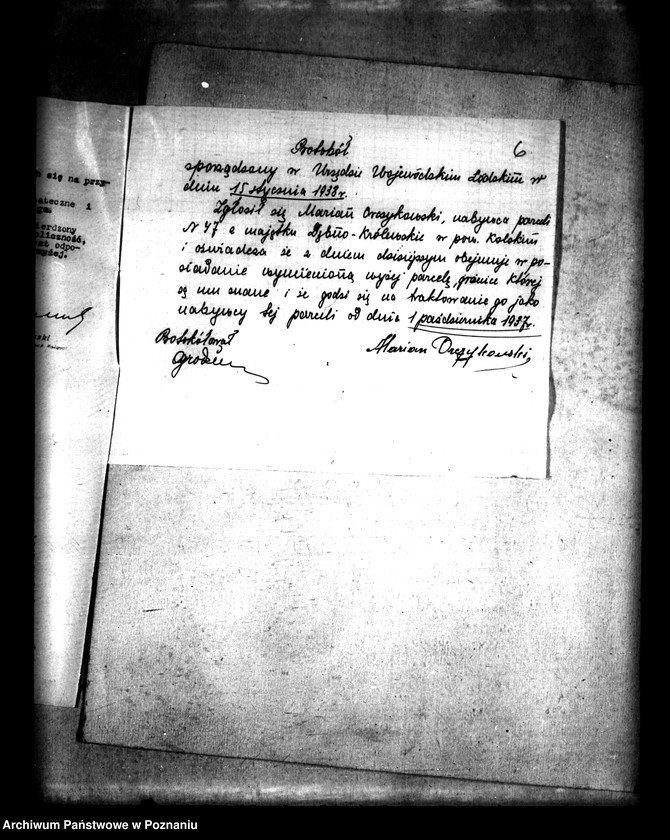 b się na przy-
ateczne i
ierdzony
bliczność,
at odpo-
yżej.
6
Protokół
sporządzony w Urzędzie Wojewódzkim Łódzkim w
dniu 15 stycznia 1938 r.
Zgłosił się Marian Orczykowski, nabywca parceli
N 47 z majątku Dębno-Królewskie w pow. Kolskim
i oświadcza że z dniem dzisiejszym obejmuje w po-
siadanie wymienioną wyżej parcelę, granice której
są mu znane i że godzi się na traktowanie go jako
nabywcy tej parceli od dnia 1 października 1937 r.
Protokółował
Marian Orczykowski
Archiwum Państwowe w Poznaniu